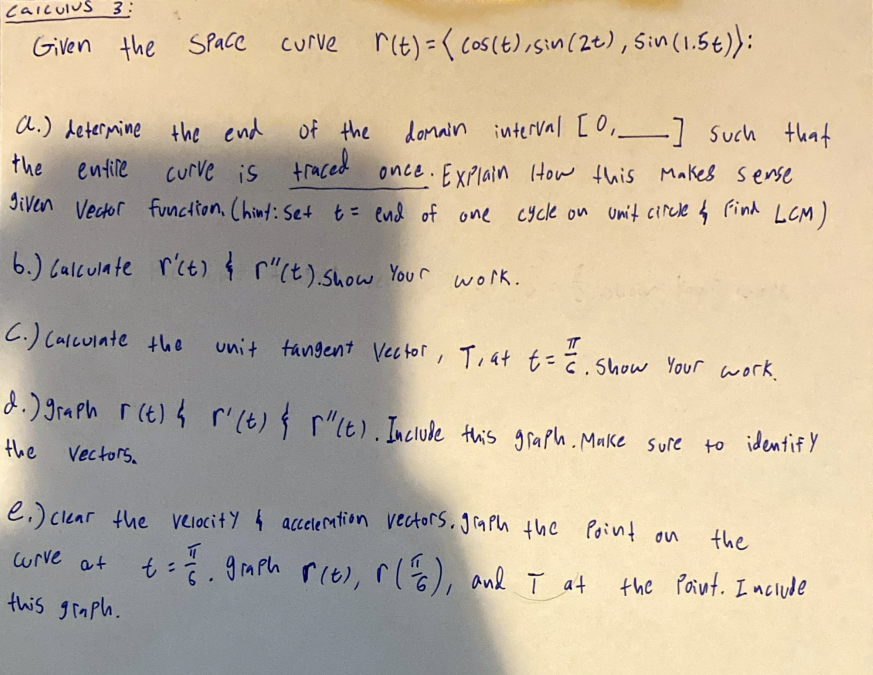 Calculus 3:
Given the Space curve r(t)=⟨cos(t), sin(2t), sin(1.5t)⟩:
a.) determine the end of the domain interval [0, ___] such that
the entire curve is traced once. Explain How this makes sense
given Vector function. (hint: set t= end of one cycle on unit circle & find LCM)
b.) Calculate r'(t) & r"(t). Show Your work.
C.) Calculate the unit tangent Vector, T, at t=π/6. Show Your work.
d.) graph r(t) & r'(t) & r"(t). Include this graph. Make sure to identify
the vectors.
e.) clear the velocity & acceleration vectors. graph the Point on the
curve at t=π/6. graph r(t), r(π/6), and T at the Point. Include
this graph.